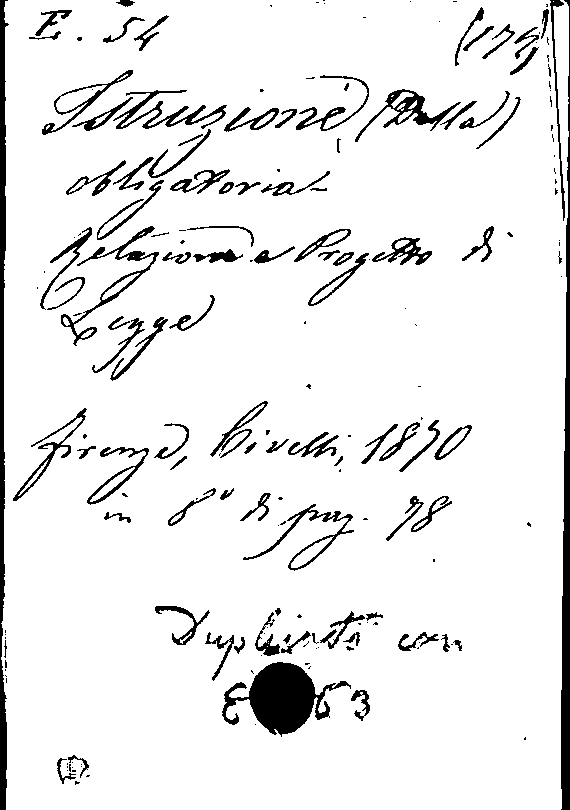 E. 54 (173)
Istruzione (Della)
obbligatoria -
Relazione e Progetto di
Legge
Firenze, Civelli, 1870
in 8° di pag. 78
Duplicato con
E 63